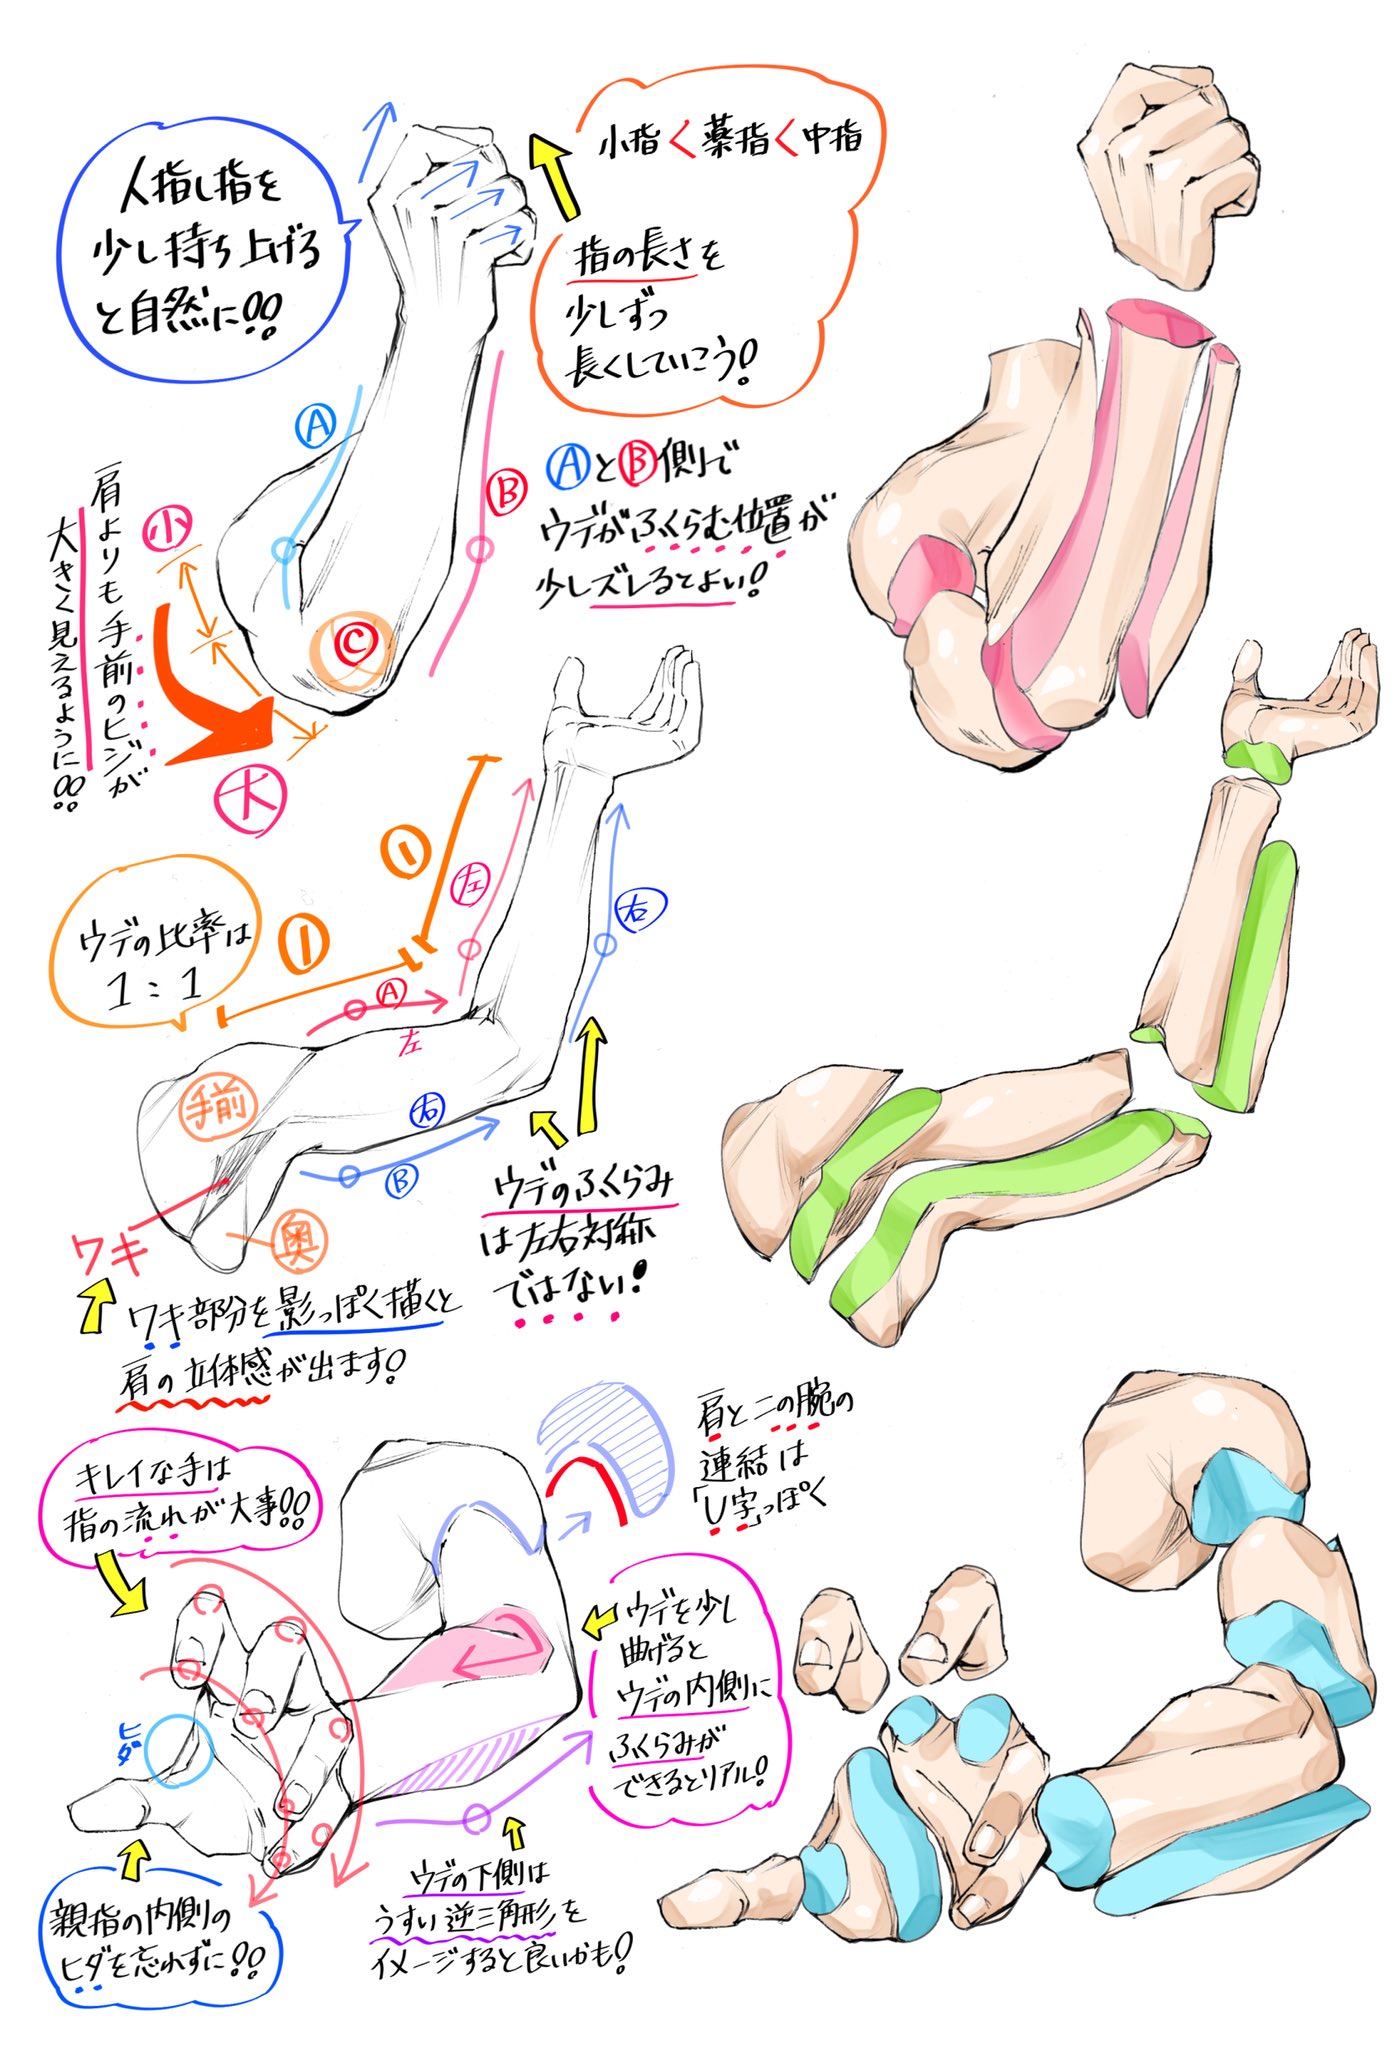 人指し指を
少し持ち上げる
と自然に!!
小指<薬指<中指
指の長さを
少しずつ
長くしていこう!
A
B
AとB側で
ウデがふくらむ位置が
少しズレるとよい!
肩よりも手前のヒジが
大きく見えるように!!
小
C
大
ウデの比率は
1:1
1
1
左
右
A
左
右
B
手前
奥
ワキ
ウデのふくらみ
は左右対称
ではない!
ワキ部分を影っぽく描くと
肩の立体感が出ます!
キレイな手は
指の流れが大事!!
肩と二の腕の
連結は
「U字」っぽく
ウデを少し
曲げると
ウデの内側に
ふくらみが
できるとリアル!
ヒダ
親指の内側の
ヒダを忘れずに!!
ウデの下側は
うすい逆三角形を
イメージすると良いかも!